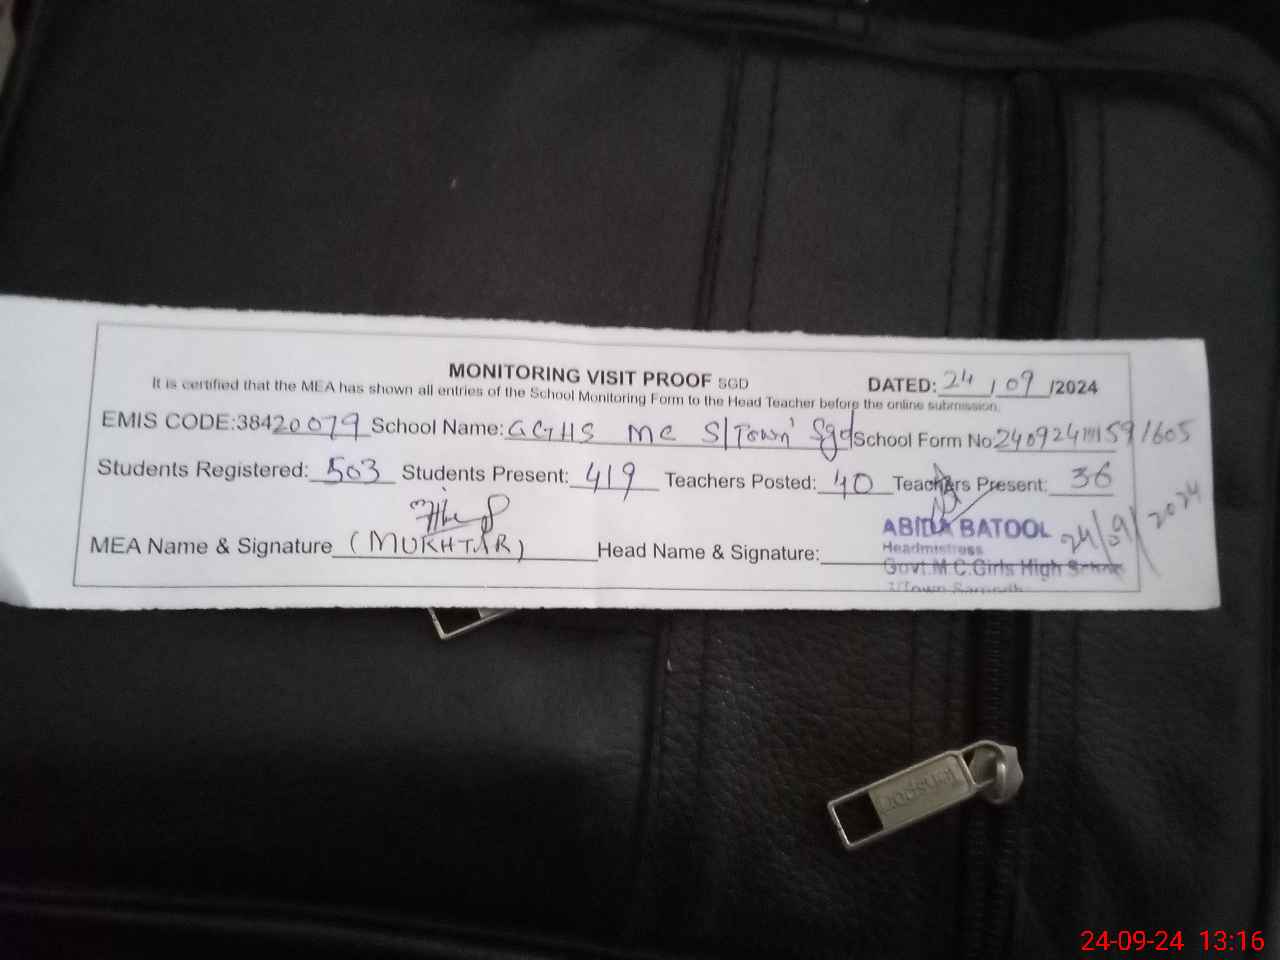 MONITORING VISIT PROOF SGD DATED: 24/09/2024
It is certified that the MEA has shown all entries of the School Monitoring Form to the Head Teacher before the online submission.
EMIS CODE:38420079 School Name: GGHS MC S/Town' Sgd School Form No:
Students Registered: 503 Students Present: 419 Teachers Posted: 40 Teachers Present: 36
MEA Name & Signature (MUKHTAR) Head Name & Signature:
ABIDA BATOOL
Headmistress
Govt.M.C.Girls High School
24/09/2024
24-09-24 13:16